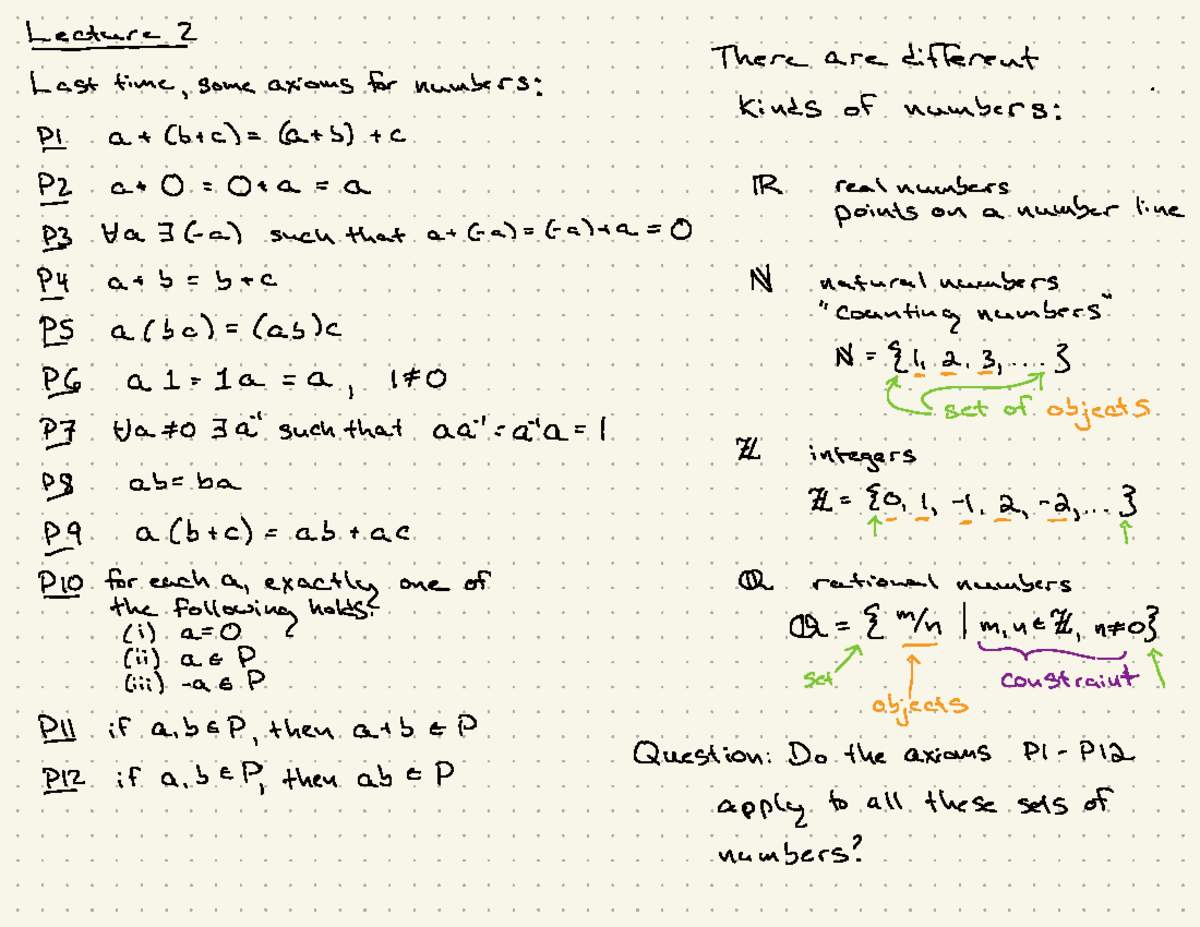 Lecture 2
Last time, some axioms for numbers:
P1 a + (b+c) = (a+b) + c
P2 a + 0 = 0 + a = a
P3 ∀a ∃(-a) such that a+(-a) = (-a)+a = 0
P4 a + b = b + c
P5 a(bc) = (ab)c
P6 a 1 = 1 a = a, 1≠0
P7 ∀a≠0 ∃a⁻¹ such that aa⁻¹ = a⁻¹a = 1
P8 ab = ba
P9 a(b+c) = ab + ac
P10 for each a, exactly one of
the following holds:
(i) a=0
(ii) a ∈ P
(iii) -a ∈ P
P11 if a,b ∈ P, then a+b ∈ P
P12 if a,b ∈ P, then ab ∈ P
There are different
kinds of numbers:
ℝ real numbers
points on a number line
ℕ natural numbers
"counting numbers"
ℕ = {1, 2, 3, ....}
set of objects
ℤ integers
ℤ = {0, 1, -1, 2, -2, ... }
ℚ rational numbers
ℚ = { m/n | m,n ∈ ℤ, n≠0}
set constraint
objects
Question: Do the axioms P1-P12
apply to all these sets of
numbers?